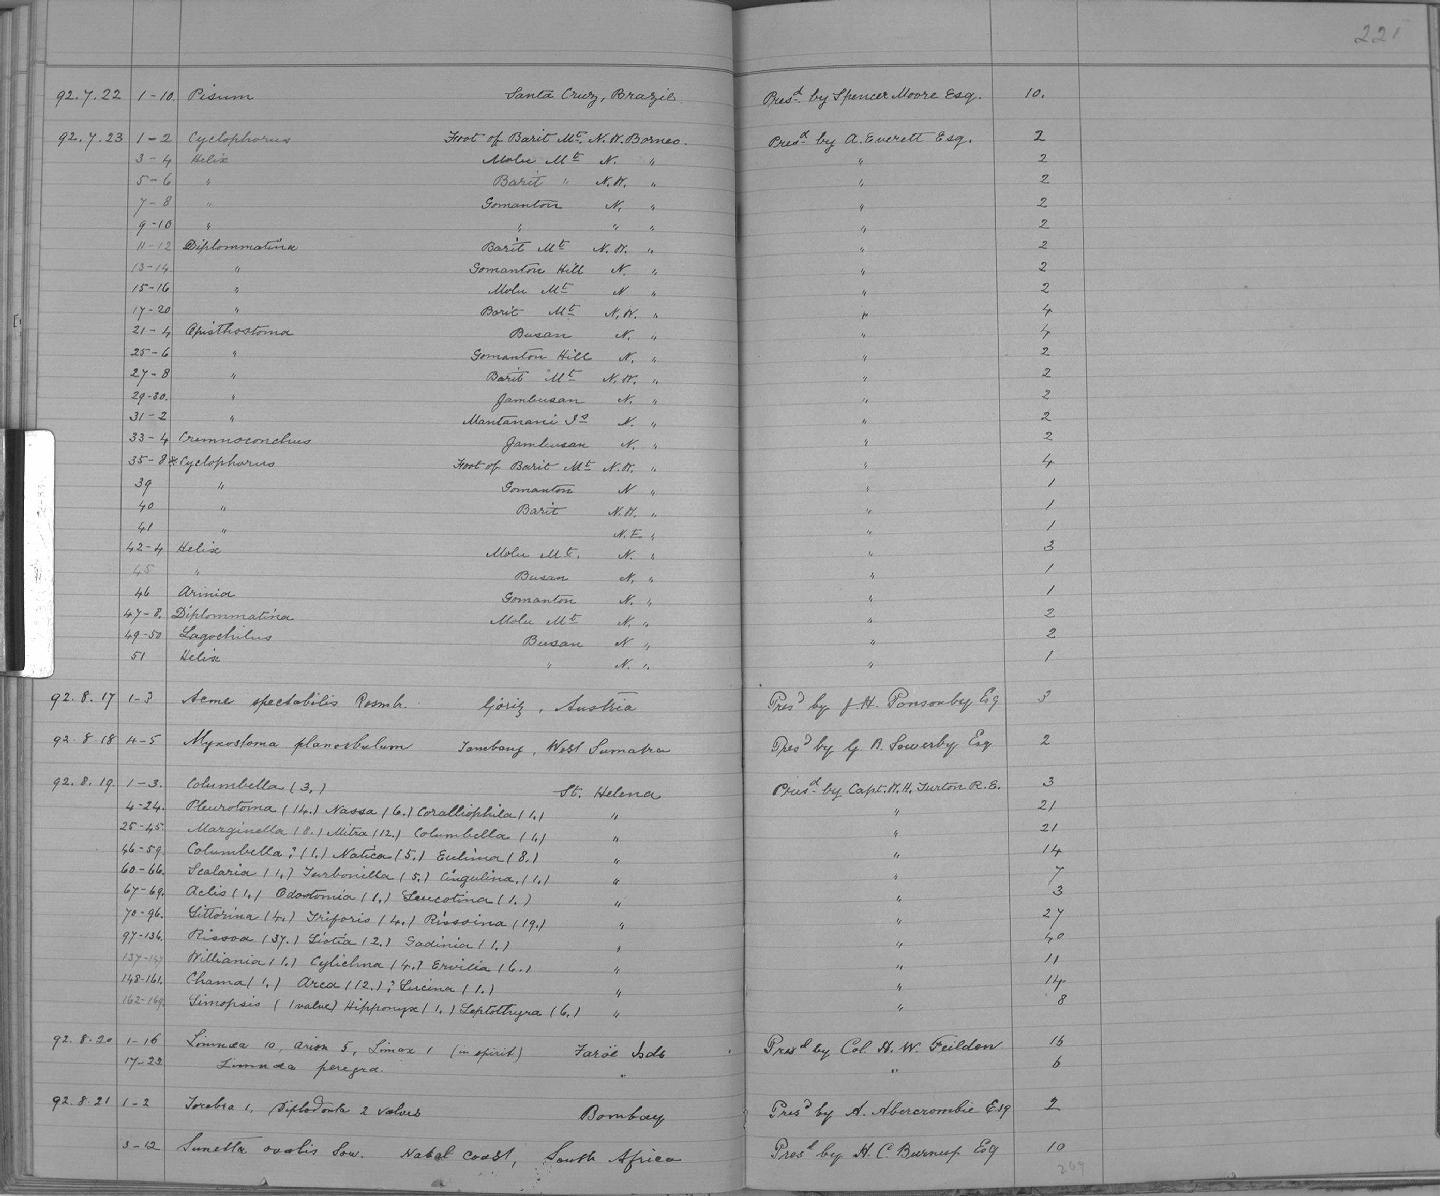 221
92.7.22 1-10. Pisum Santa Cruz, Brazil. Presd by Spencer Moore Esq. 10.
92.7.23 1-2 Cyclophorus Foot of Barit Mt. N.W. Borneo. Presd by A. Everett Esq. 2
3-4 Helix Molu Mt N. " " 2
5-6 " Barit " N.W. " " 2
7-8 " Gomanton N. " " 2
9-10 " " " " " 2
11-12 Diplommatina Barit Mt N.W. " " 2
13-14 " Gomanton Hill N. " " 2
15-16 " Molu Mt N " " 2
17-20 " Barit Mt N.W. " " 4
21-4 Opisthostoma Busan N. " " 4
25-6 " Gomanton Hill N. " " 2
27-8 " Barit Mt N.W. " " 2
29-30. " Jambusan N. " " 2
31-2 " Mantanani Is N. " " 2
33-4 Cremnoconchus Jambusan N. " " 2
35-8 * Cyclophorus Foot of Barit Mt N.W. " " 4
39 " Gomanton N " " 1
40 " Barit N.W. " " 1
41 " N.E. " " 1
42-4 Helix Molu Mt. N. " " 3
45 " Busan N. " " 1
46 Arinia Gomanton N. " " 1
47-8. Diplommatina Molu Mt N. " " 2
49-50 Lagochilus Busan N " " 2
51 Helix " N. " " 1
92.8.17 1-3 Acme spectabilis Rossm. Göritz, Austria Presd by J H. Ponsonby Esq 3
92.8.18 4-5 Myxostoma planorbulum West Sumatra Presd by G. B. Sowerby Esq 2
92.8.19. 1-3. Columbella (3.) St. Helena Presd by Capt. W.H. Turton R.E. 3
4-24. Pleurotoma (14.) Nassa (6.) Coralliophila (1.) " " 21
25-45. Marginella (8.) Mitra (12.) Columbella (1.) " " 21
46-59. Columbella? (1.) Natica (5.) Eulima (8.) " " 14
60-66. Scalaria (1.) Turbonilla (5.) Cingulina. (1.) " " 7
67-69. Aclis (1.) Odostomia (1.) Leucotina (1.) " " 3
70-96. Littorina (4.) Triforis (4.) Rissoina (19.) " " 27
97-136. Rissoa (37.) Liotia (2.) Gadinia (1.) " " 40
137-147 Williamia (1.) Cylichna (4.) Ervilia (6.) " " 11
148-161. Chama (1.) Arca (12.) ? Lucina (1.) " " 14
162-169. Limopsis (1 valve) Hipponyx (1.) Leptothyra (6.) " " 8
92.8.20 1-16 Limnæa 10, Arion 5, Limax 1 (in spirit) Faröe Isds Presd by Col. H. W. Feilden 16
17-22 Limnæa peregra. " " 6
92.8.21 1-2 Terebra 1, Diplodonta 2 valves Bombay Presd by A. Abercrombie Esq 2
3-12 Sunetta ovalis Sow. Natal Coast, South Africa Presd by H. C. Burnup Esq 10
269